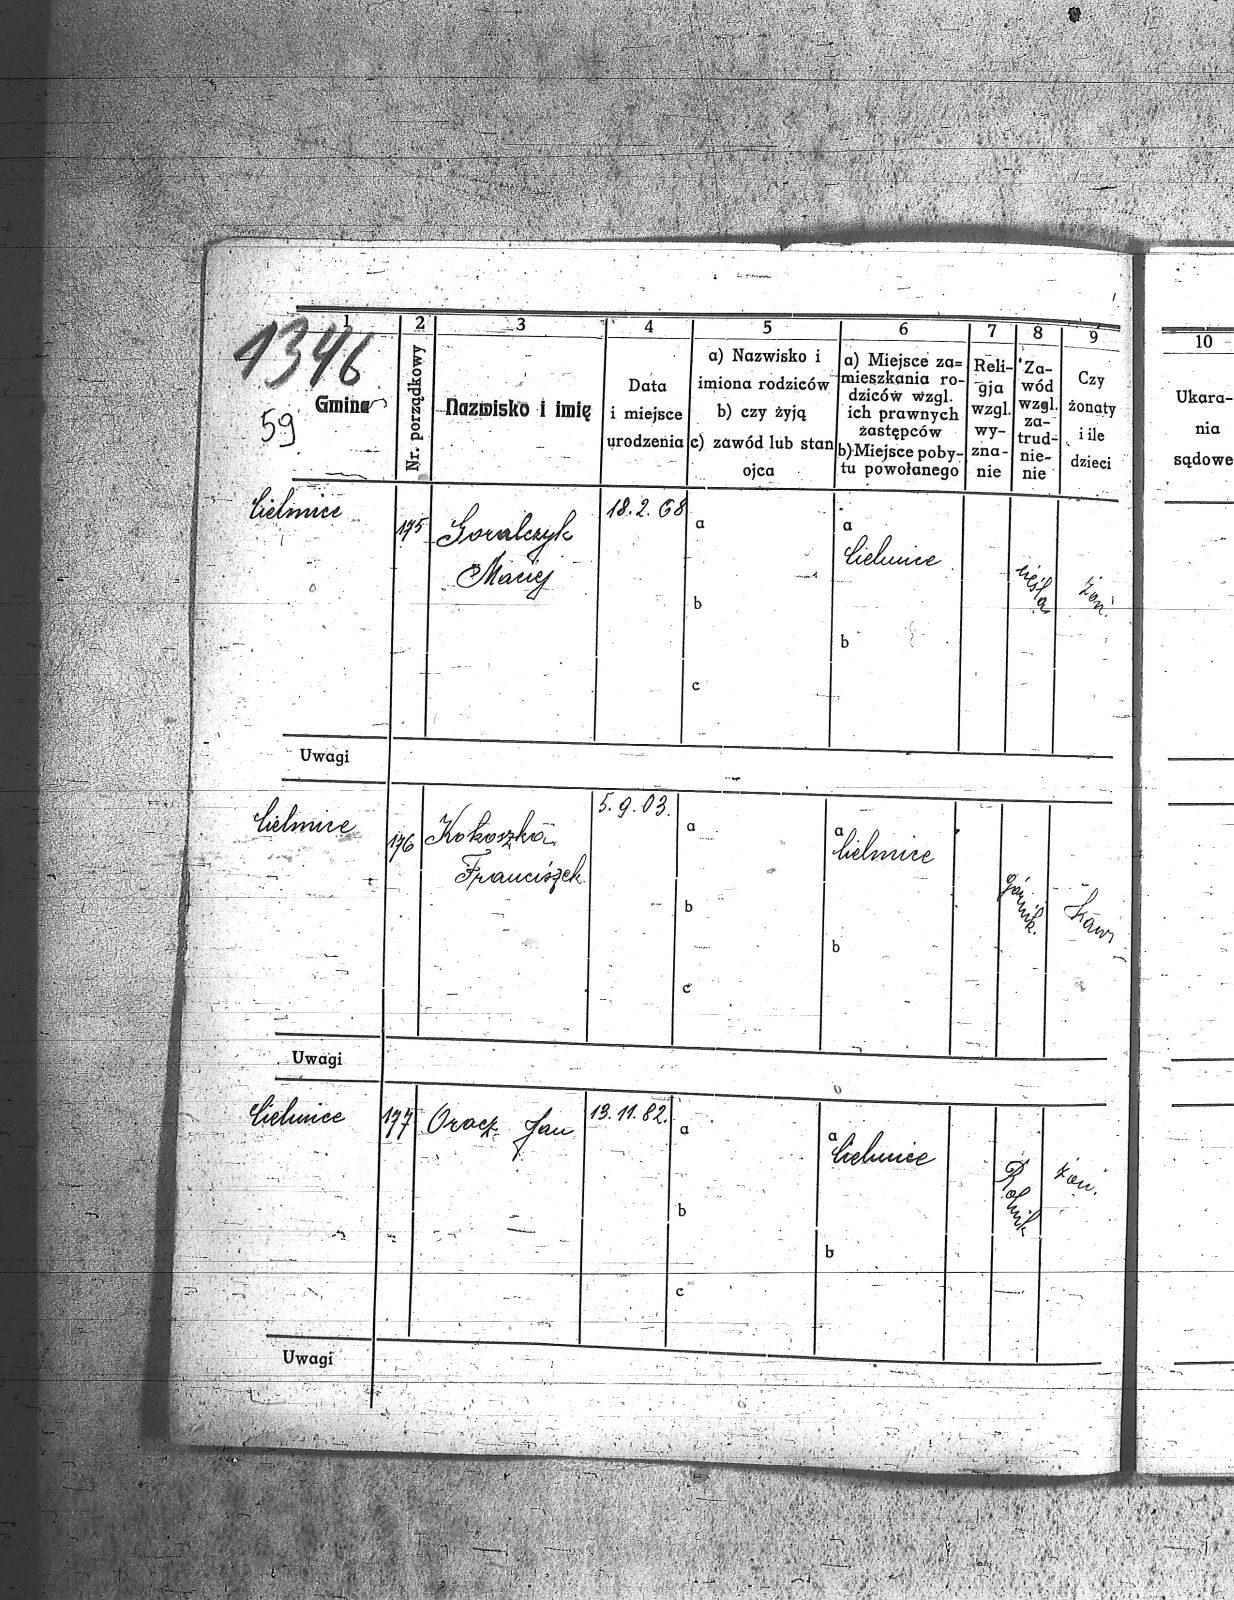 1346
59
1 2 3 4 5 6 7 8 9 10
Gmina
Nr. porządkowy
Nazwisko i imię
Data
i miejsce
urodzenia
a) Nazwisko i
imiona rodziców
b) czy żyją
c) zawód lub stan
ojca
a) Miejsce za=
mieszkania ro-
dziców wzgl.
ich prawnych
zastępców
b) Miejsce poby-
tu powołanego
Reli-
gja
wzgl.
wy-
zna-
nie
Za-
wód
wzgl.
za-
trud-
nie-
nie
Czy
żonaty
i ile
dzieci
Ukara-
nia
sądowe
Cielmice
175
Goralczyk
Maciej
18.2.68
a
b
c
a
Cielmice
b
cieśla
żon.
Uwagi
Cielmice
176
Kokoszka
Franciszek
5.9.03.
a
b
c
a
Cielmice
b
górnik.
Kaw
Uwagi
Cielmice
177
Oracz Jan
13.11.82.
a
b
c
a
Cielmice
b
Rolnik
żon.
Uwagi